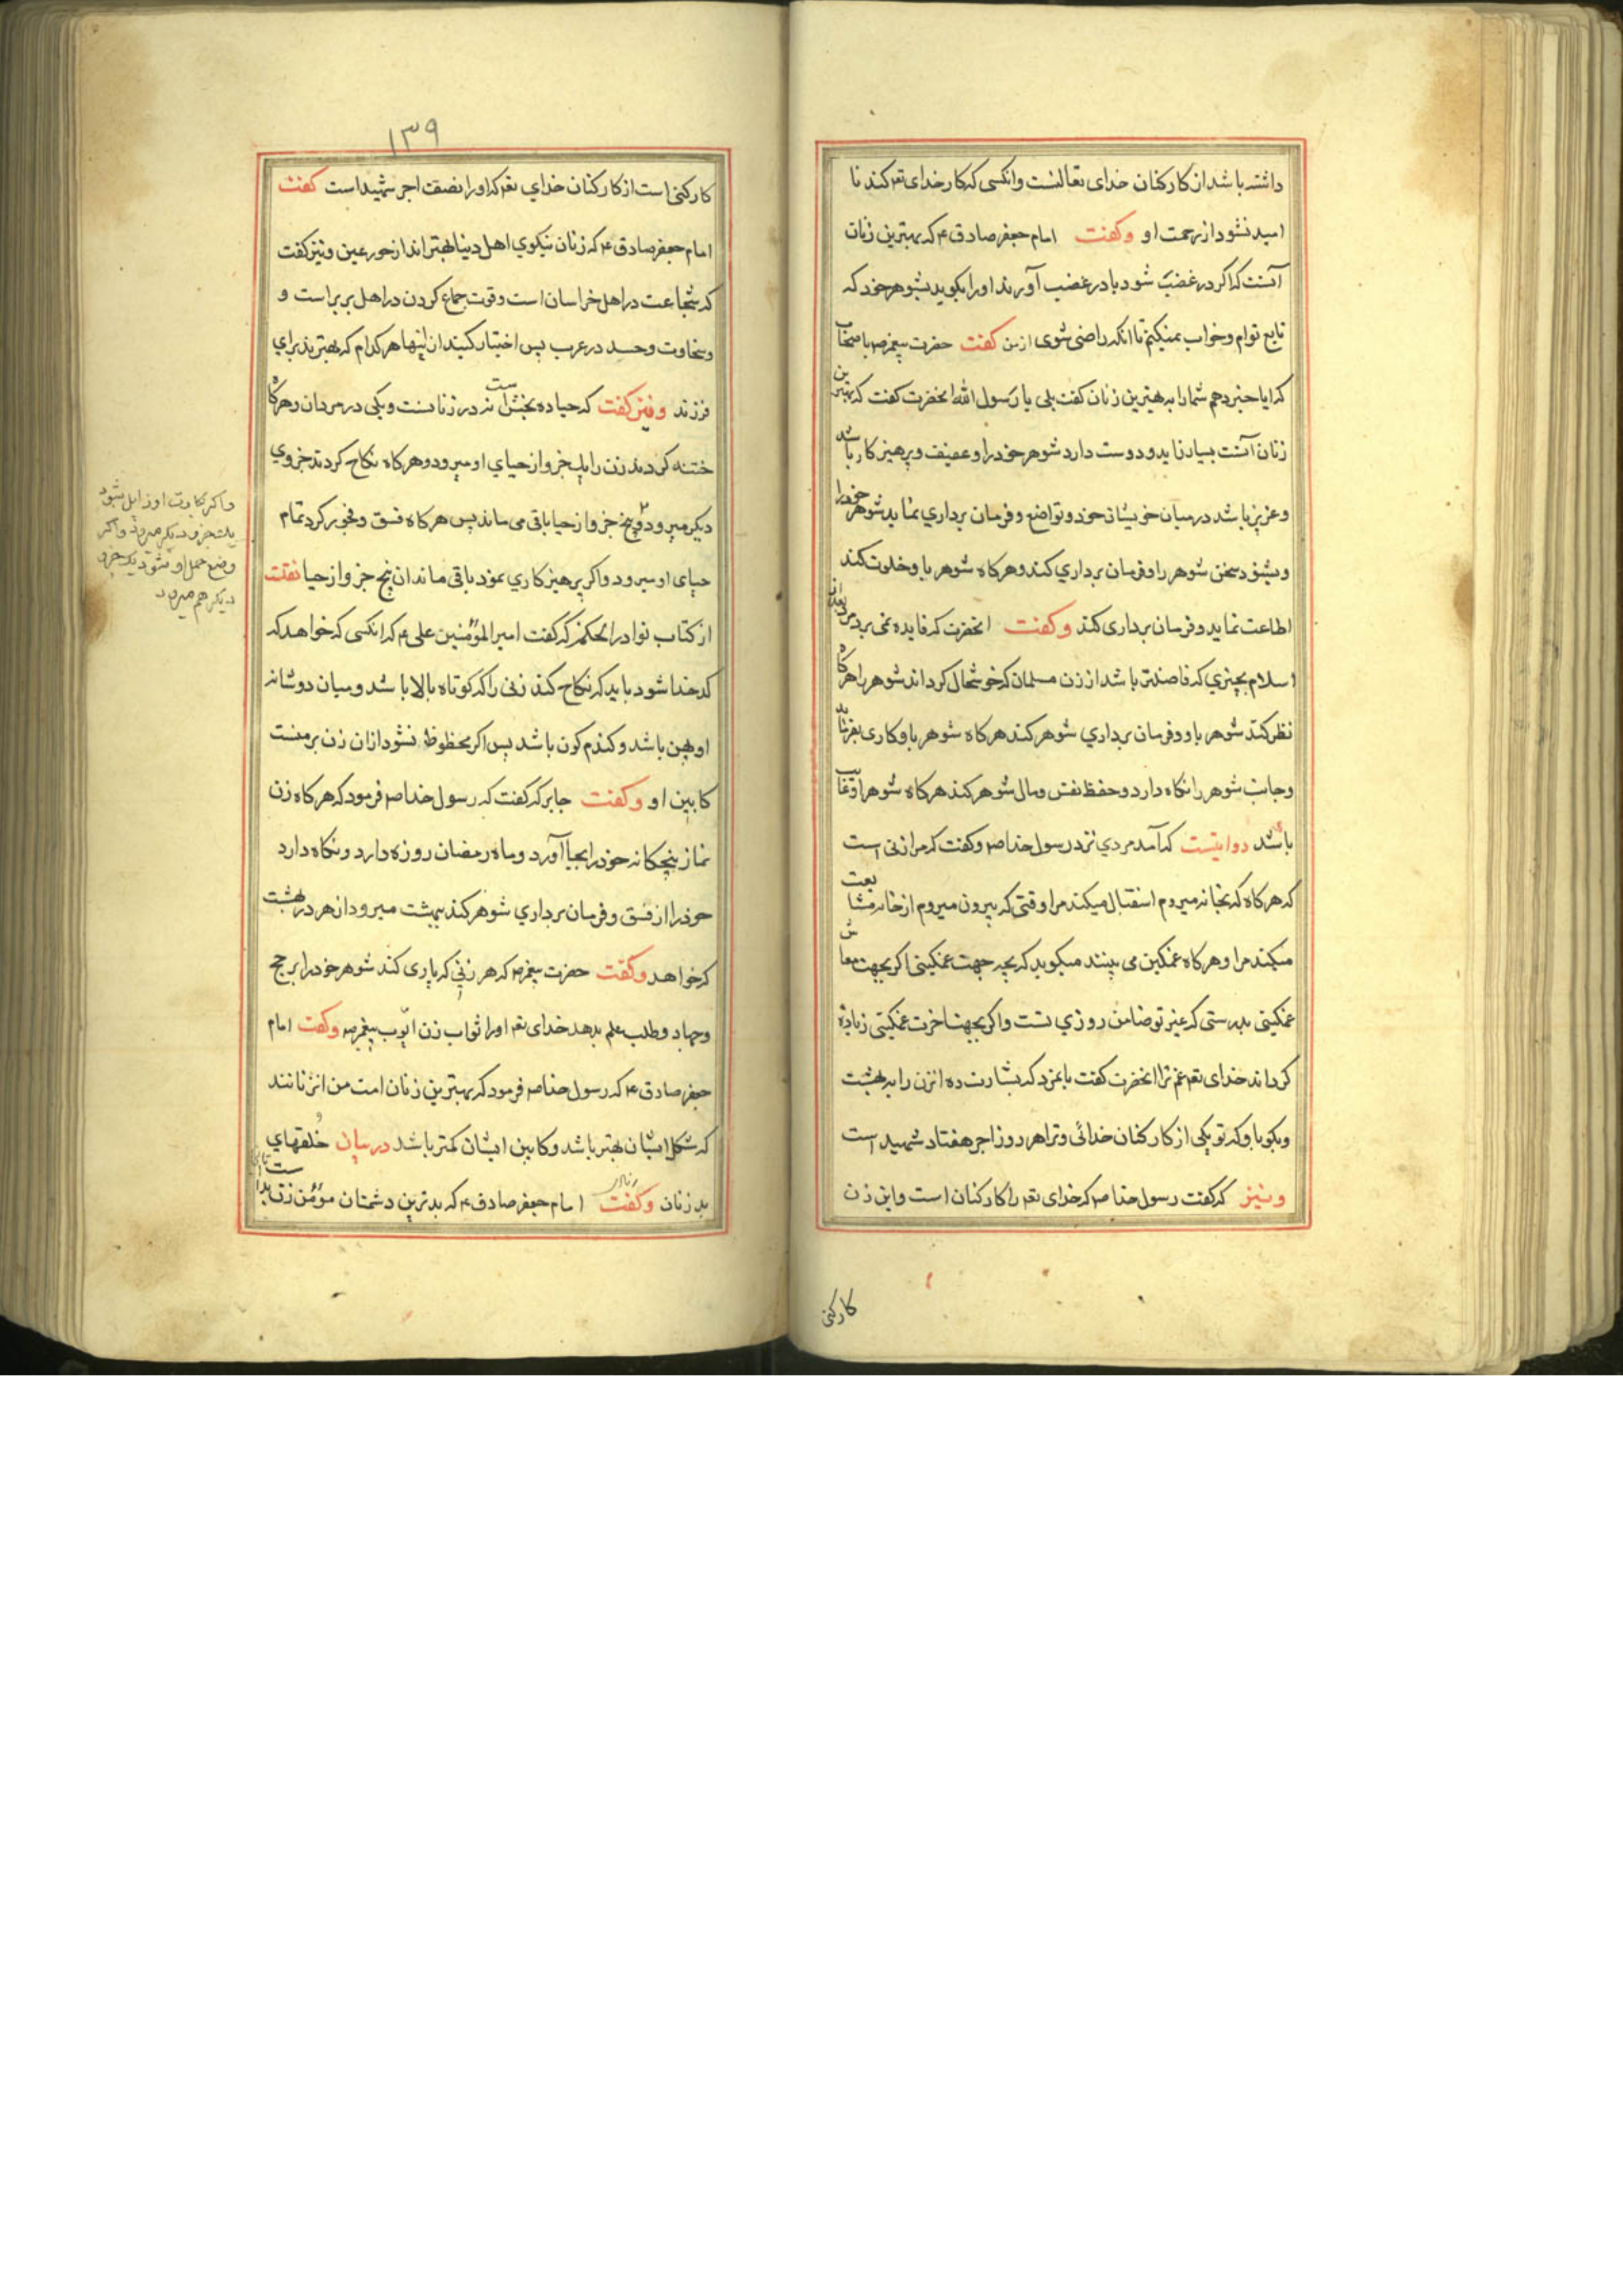 داشته باشد از کارکنان خدای تعالیست و انکسی که کار خدای تعه کند نا
امید نشود از رحمت او وکفت امام جعفر صادق ع که بهترین زنان
آنست که اکر در غضب شود یا در غضب آورند او را بکوید بشوهر خود که
تابع توام و خواب نمیکنم تا انکه راضی شوی از من کفت حضرت پیغمبر ص باصحاب
که ایا خبر دهم شما را به بهترین زنان کفت بلی یا رسول الله انحضرت کفت که بهترین
زنان آنست بسیار زاید و دوست دارد شوهر خود را و عفیف و پرهیزکار باشد
و عزیز باشد در میان خویشان خود و تواضع و فرمان برداری نماید شوهر خود را
و بشنود سخن شوهر را و فرمان برداری کند و هرکاه شوهر با و خلوت کند
اطاعت نماید و فرمان برداری کند وکفت انحضرت که فایده نمی برد مرد بعد از
اسلام بچیزی که فاضلتر باشد از زن مسلمان که خوشحال کرداند شوهر را هرکاه
نظر کند شوهر باو و فرمان برداری شوهر کند هرکاه شوهر باو کاری بفرماید
و جانب شوهر را نکاه دارد و حفظ نفس و مال شوهر کند هرکاه شوهر او غایب
باشد روایتست که آمد مردی نزد رسول خدا ص و کفت که مرا زنی است
که هرکاه که بخانه میروم استقبال میکند مرا و قتی که بیرون میروم از خانه مشایعت
میکند مرا و هرکاه غمکین می بیند میکوید که بچه جهت غمکینی اکر بجهت معاش
غمکینی بدرستی که غیر تو ضامن روزی تست و اکر بجهت اخرت غمکینی زیاده
کرداند خدای تعه غم ترا انحضرت کفت بانمرد که بشارت ده انزن را به بهشت
و بکو باو که تو یکی از کارکنان خدائی و ترا هر روز اجر هفتاد شهید است
ونیز که کفت رسول خدا ص که خدای تعه را کارکنان است و این زن
کارکنی
۱۳۹
کارکنی است از کارکنان خدای تعه که او را نصف اجر شهید است کفت
امام جعفر صادق ع که زنان نیکوی اهل دنیا بهتراند از حور عین و نیز کفت
که شجاعت در اهل خراسان است و قوت جماع کردن در اهل بربر است و
و سخاوت و حسد در عرب پس اختیار کنید از اینها هر کدام که بهترند برای
فرزند ونیز کفت که حیا ده بخش است نه در زنانست و یکی در مردان و هرکاه
ختنه کردند زن را یک جزو از حیای او میرود و هرکاه نکاح کردند جزوی
دیکر میرود و پنج جزو از حیا باقی می ماند پس هرکاه فسق و فجور کرد تمام
حیای او میرود و اکر پرهیزکاری نمود باقی ماند ان پنج جزو از حیا نقلت
از کتاب نوادر الحکمة که کفت امیر المؤمنین علی ع که انکسی که خواهد که
کدخدا شود باید که نکاح کند زنی را که کوتاه بالا باشد و میان دو شانه
او پهن باشد و کندم کون باشد پس اکر محظوظ نشود ازان زن بر منست
کابین او وکفت جابر که کفت که رسول خدا ص فرمود که هرکاه زن
نماز پنچکانه خود را بجا آورد و ماه رمضان روزه دارد و نکاه دارد
خود را از فسق و فرمان برداری شوهر کند ببهشت میرود از هر در بهشت
که خواهد وکفت حضرت پیغمبر ص که هر زنی که یاری کند شوهر خود را بر حج
و جهاد و طلب علم بدهد خدای تعه او را ثواب زن ایّوب پیغمبر ص وکفت امام
جعفر صادق ع که رسول خدا ص فرمود که بهترین زنان امت من انزنانند
که شکل ایشان بهتر باشد و کابین ایشان کمتر باشد در بیان خُلقهای
بد زنان وکفت امام جعفر صادق ع که بدترین دشمنان مؤمن زن بد است
و اکر بکارت او زایل شود
یک جزو دیکر میرود و اکر
وضع حمل او بشود یک جزو
دیکر هم میرود